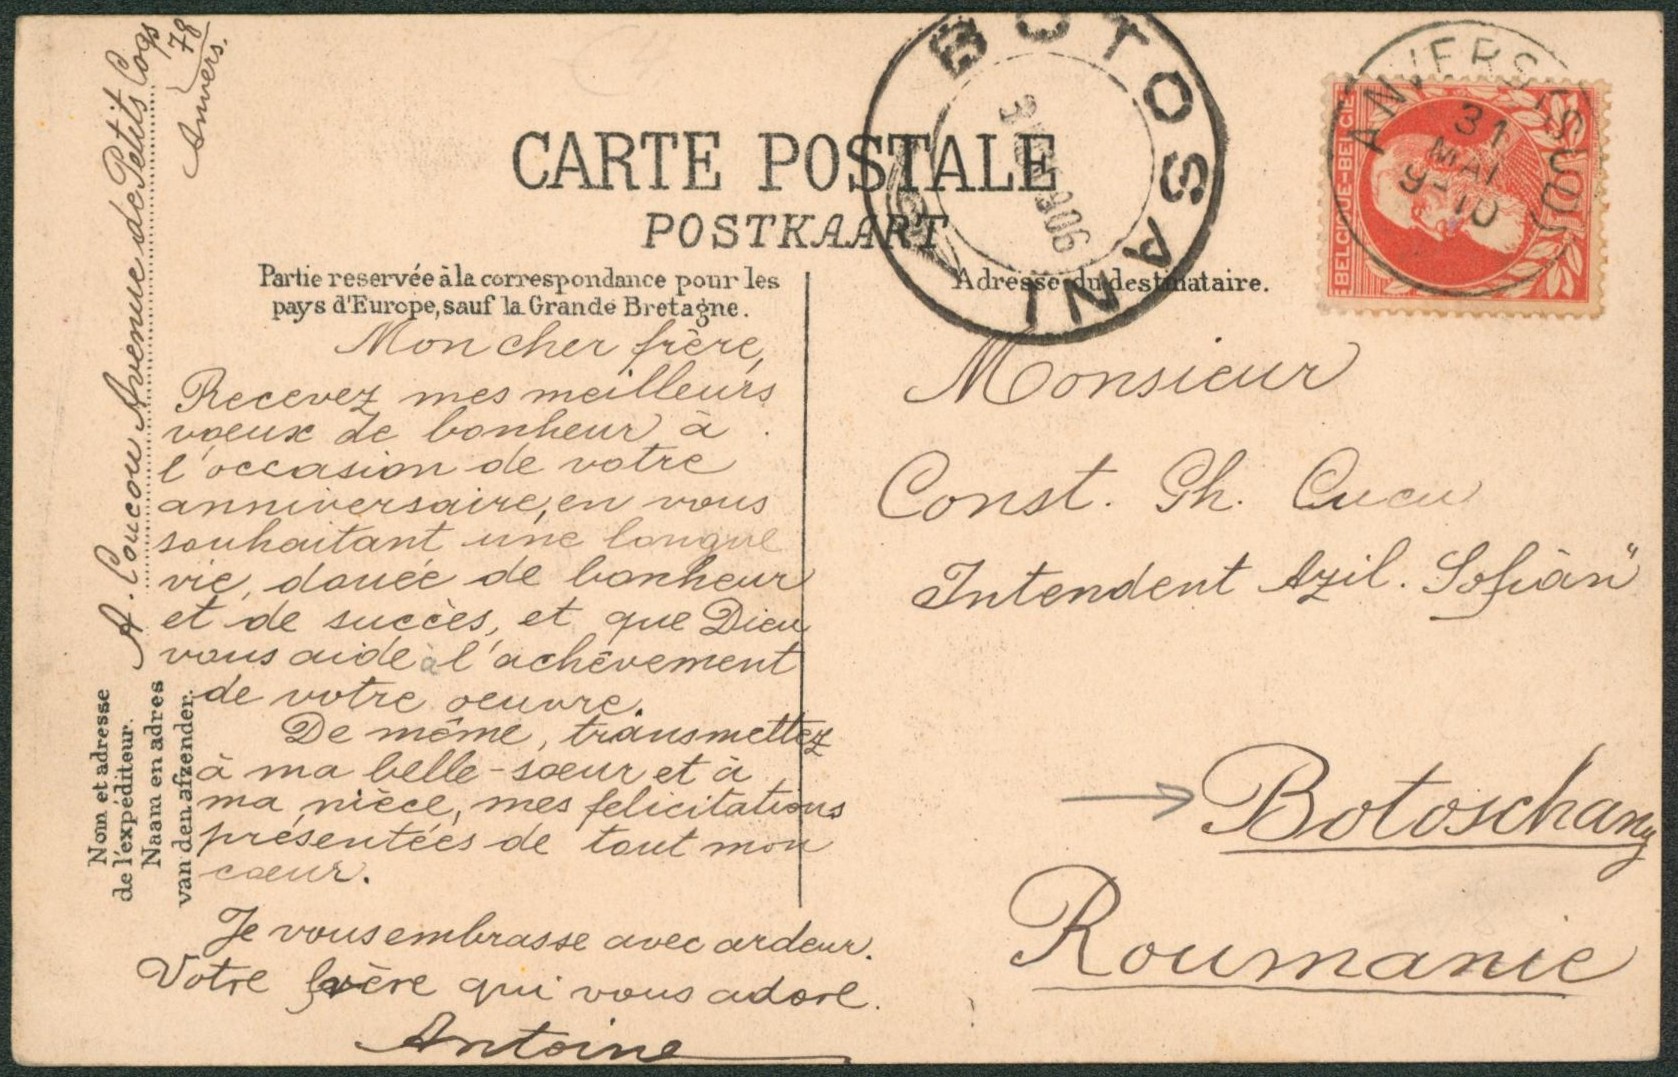 CARTE POSTALE
POSTKAART
Partie reservée à la correspondance pour les
pays d'Europe, sauf la Grande Bretagne.
Adresse du destinataire.
Mon cher frère,
Recevez mes meilleurs
voeux de bonheur à
l'occasion de votre
anniversaire, en vous
souhaitant une longue
vie, douée de bonheur
et de succès, et que Dieu
vous aide à l'achèvement
de votre oeuvre.
De même, transmettez
à ma belle-soeur et à
ma nièce, mes felicitations
présentées de tout mon
coeur.
Je vous embrasse avec ardeur.
Votre frère qui vous adore.
Antoine
Monsieur
Const. Gh. Cucu
Intendent Azil. Sofian"
Botoschany
Roumanie
A. Coucou Avenue de Petits Coqs
78
Anvers.
Nom et adresse
de l'expéditeur.
Naam en adres
van den afzender.
BOTOSANI
906
ANVERS (SUD)
31
MAI
9-10
BELGIQUE-BELGIË